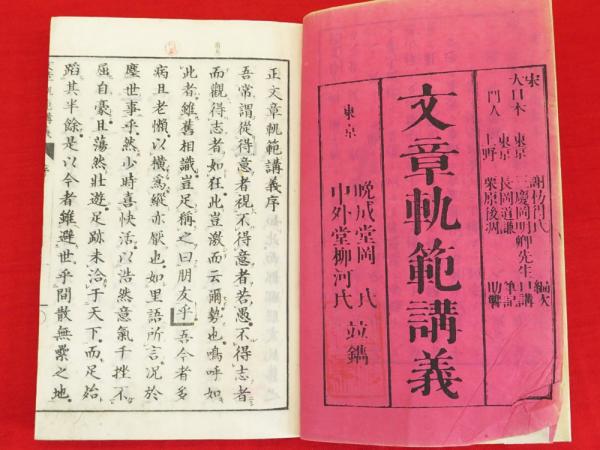 宋 謝枋得氏 編次
大日本 東京 三慶岡明卿先生 口講
門人 東京 長岡道謙 筆記
上野 栗原俊凋 助讐
文章軌範講義
東京
晩成堂岡氏
中外堂柳河氏 竝鐫
正文章軌範講義序
吾常謂從得意者視不得意者若愚不得志者
而觀得志者如狂此豈激而云爾勢也嗚呼如
此者雖舊相識豈足稱之曰朋友乎吾今者多
病且老懶以橫爲縱亦厭也如里語所言況於
塵世事乎然少時喜快活以浩然意氣千挫不
屈自豪且蕩然壯遊足跡未洽于天下而足殆
蹈其半餘是以今者雖避世乎間散無纍之地